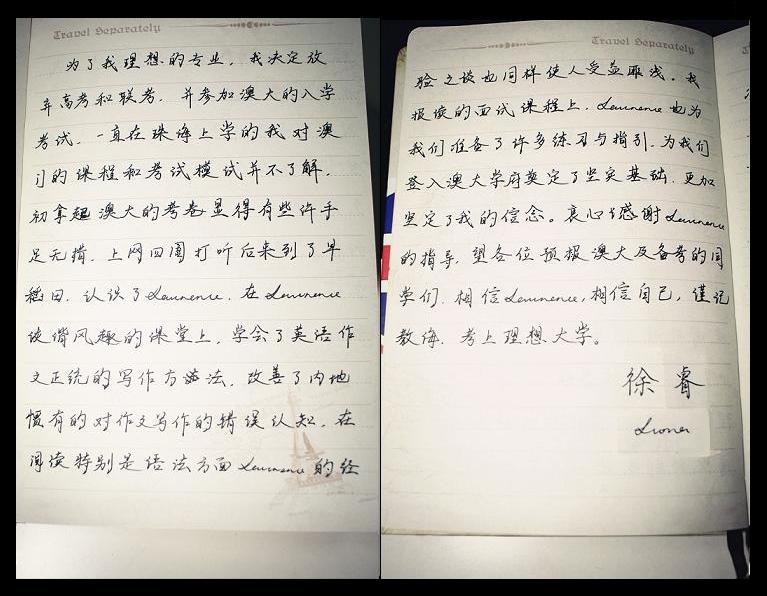 Travel Separately
为了我理想的专业，我决定放
弃高考和联考，并参加澳大的入学
考试，一直在珠海上学的我对澳
门的课程和考试模试并不了解，
初拿起澳大的考卷显得有些许手
足无措，上网四围打听后来到了早
稻田，认识了Lawrence，在Lawrence
诙谐风趣的课堂上，学会了英语作
文正统的写作方法，改善了内地
惯有的对作文写作的错误认知，在
阅读特别是语法方面Lawrence的经
Travel Separately
验之谈也同样使人受益匪浅，我
报读的面试课程上，Lawrence也为
我们准备了许多练习与指引，为我们
登入澳大学府奠定了坚实基础，更加
坚定了我的信念。衷心感谢Lawrence
的指导，望各位预报澳大及备考的同
学们，相信Lawrence，相信自己，谨记
教诲，考上理想大学。
徐睿